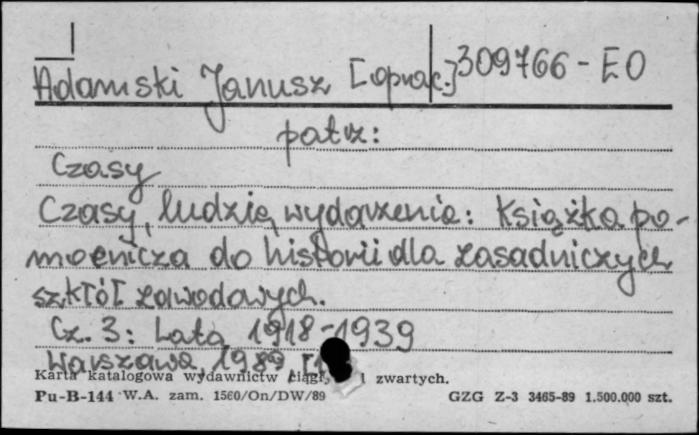 Adamski Janusz [oprac.] 309766-EO
patrz:
Czasy
Czasy, ludzie, wydarzenia: Książka po-
mocnicza do historii dla zasadniczych
szkół zawodowych.
Cz. 3: Lata 1918-1939
Warszawa, 1989,
Karta katalogowa wydawnictw ciągł. zwartych.
Pu-B-144 W.A. zam. 1560/On/DW/89 GZG Z-3 3465-89 1.500.000 szt.